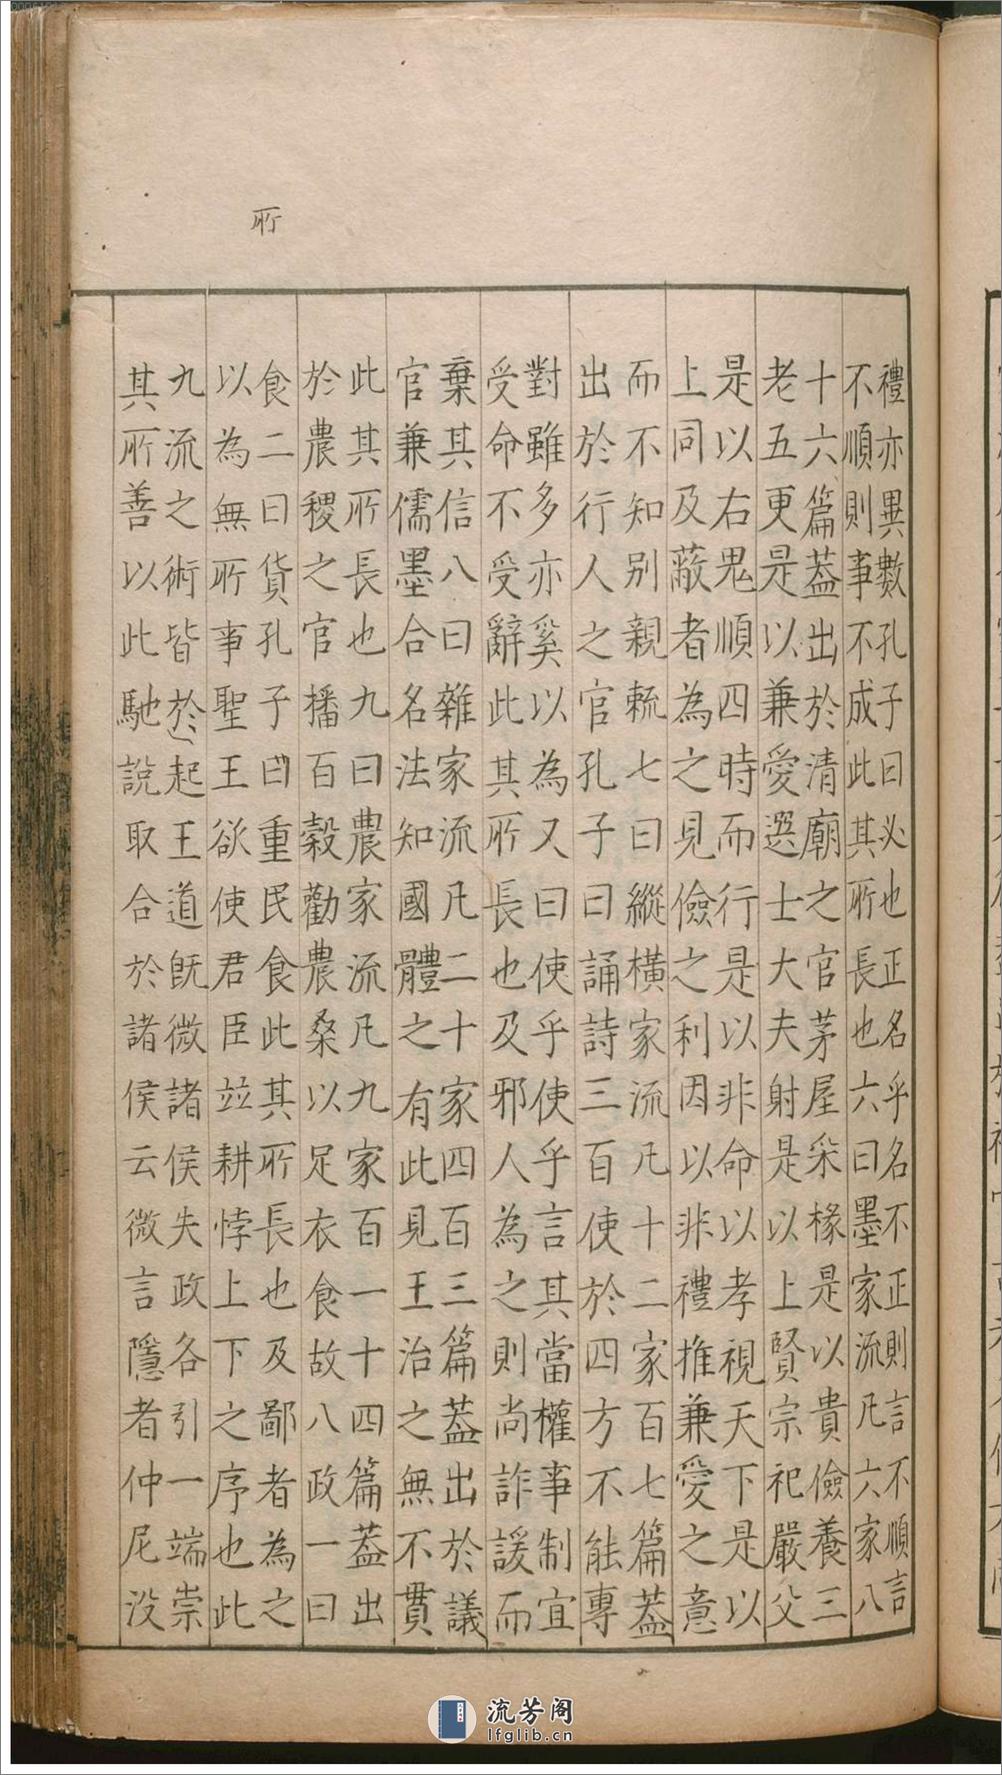 所
禮亦異數孔子曰必也正名乎名不正則言不順言
不順則事不成此其所長也六曰墨家流凡六家八
十六篇蓋出於清廟之官茅屋采椽是以貴儉養三
老五更是以兼愛選士大夫射是以上賢宗祀嚴父
是以右鬼順四時而行是以非命以孝視天下是以
上同及蔽者為之見儉之利因以非禮推兼愛之意
而不知别親䟽七曰縱橫家流凡十二家百七篇蓋
出於行人之官孔子曰誦詩三百使於四方不能專
對雖多亦奚以為又曰使乎使乎言其當權事制宜
受命不受辭此其所長也及邪人為之則尚詐諼而
棄其信八曰雜家流凡二十家四百三篇蓋出於議
官兼儒墨合名法知國體之有此見王治之無不貫
此其所長也九曰農家流凡九家百一十四篇蓋出
於農稷之官播百穀勸農桑以足衣食故八政一曰
食二曰貨孔子曰重民食此其所長也及鄙者為之
以為無所事聖王欲使君臣竝耕悖上下之序也此
九流之術皆於起王道既微諸侯失政各引一端崇
其所善以此馳說取合於諸侯云微言隱者仲尼没
流芳阁
lfglib.cn